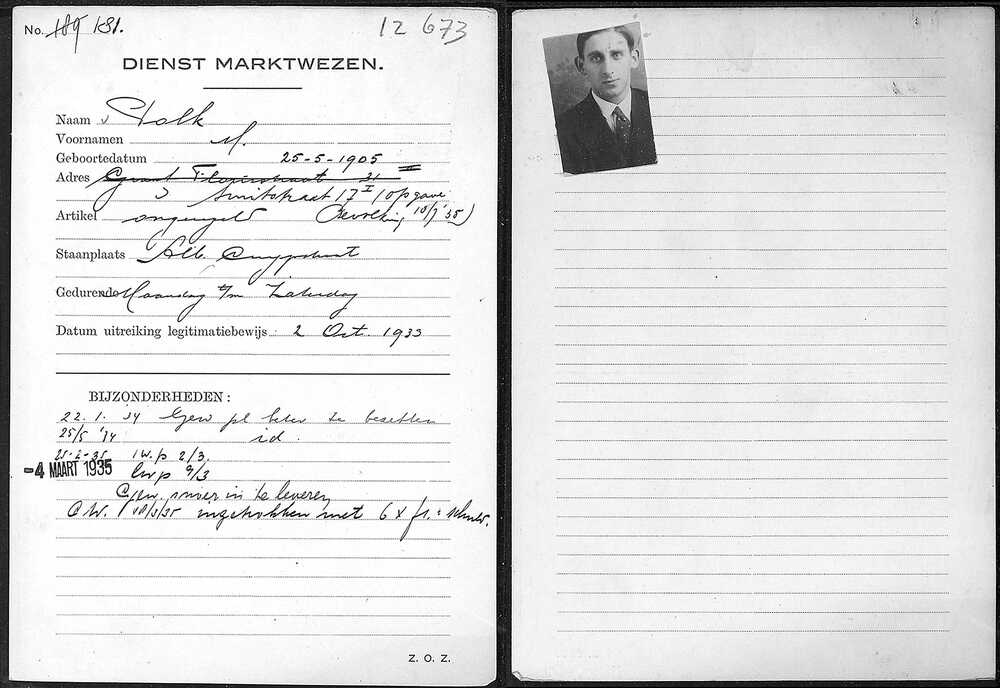 No. 189 181. 12 673
DIENST MARKTWEZEN.
Naam v Polk
Voornamen M.
Geboortedatum 25-5-1905
Adres Govert Flinckstraat 31 II
Smitstraat 17 I (opgave
Artikel ongeregeld Bevolking 10/7 '35)
Staanplaats Alb. Cuypstraat
Gedurende Maandag t/m Zaterdag
Datum uitreiking legitimatiebewijs 2 Oct. 1933
BIJZONDERHEDEN:
22.1.34 Gew pl beter te bezetten
25/5 '34 id.
25-2-35 1 w.p 2/3.
-4 MAART 1935 lwp 9/3
Gew. in te leveren
C.W. ingetrokken met 6 x f1.-
Z. O. Z.